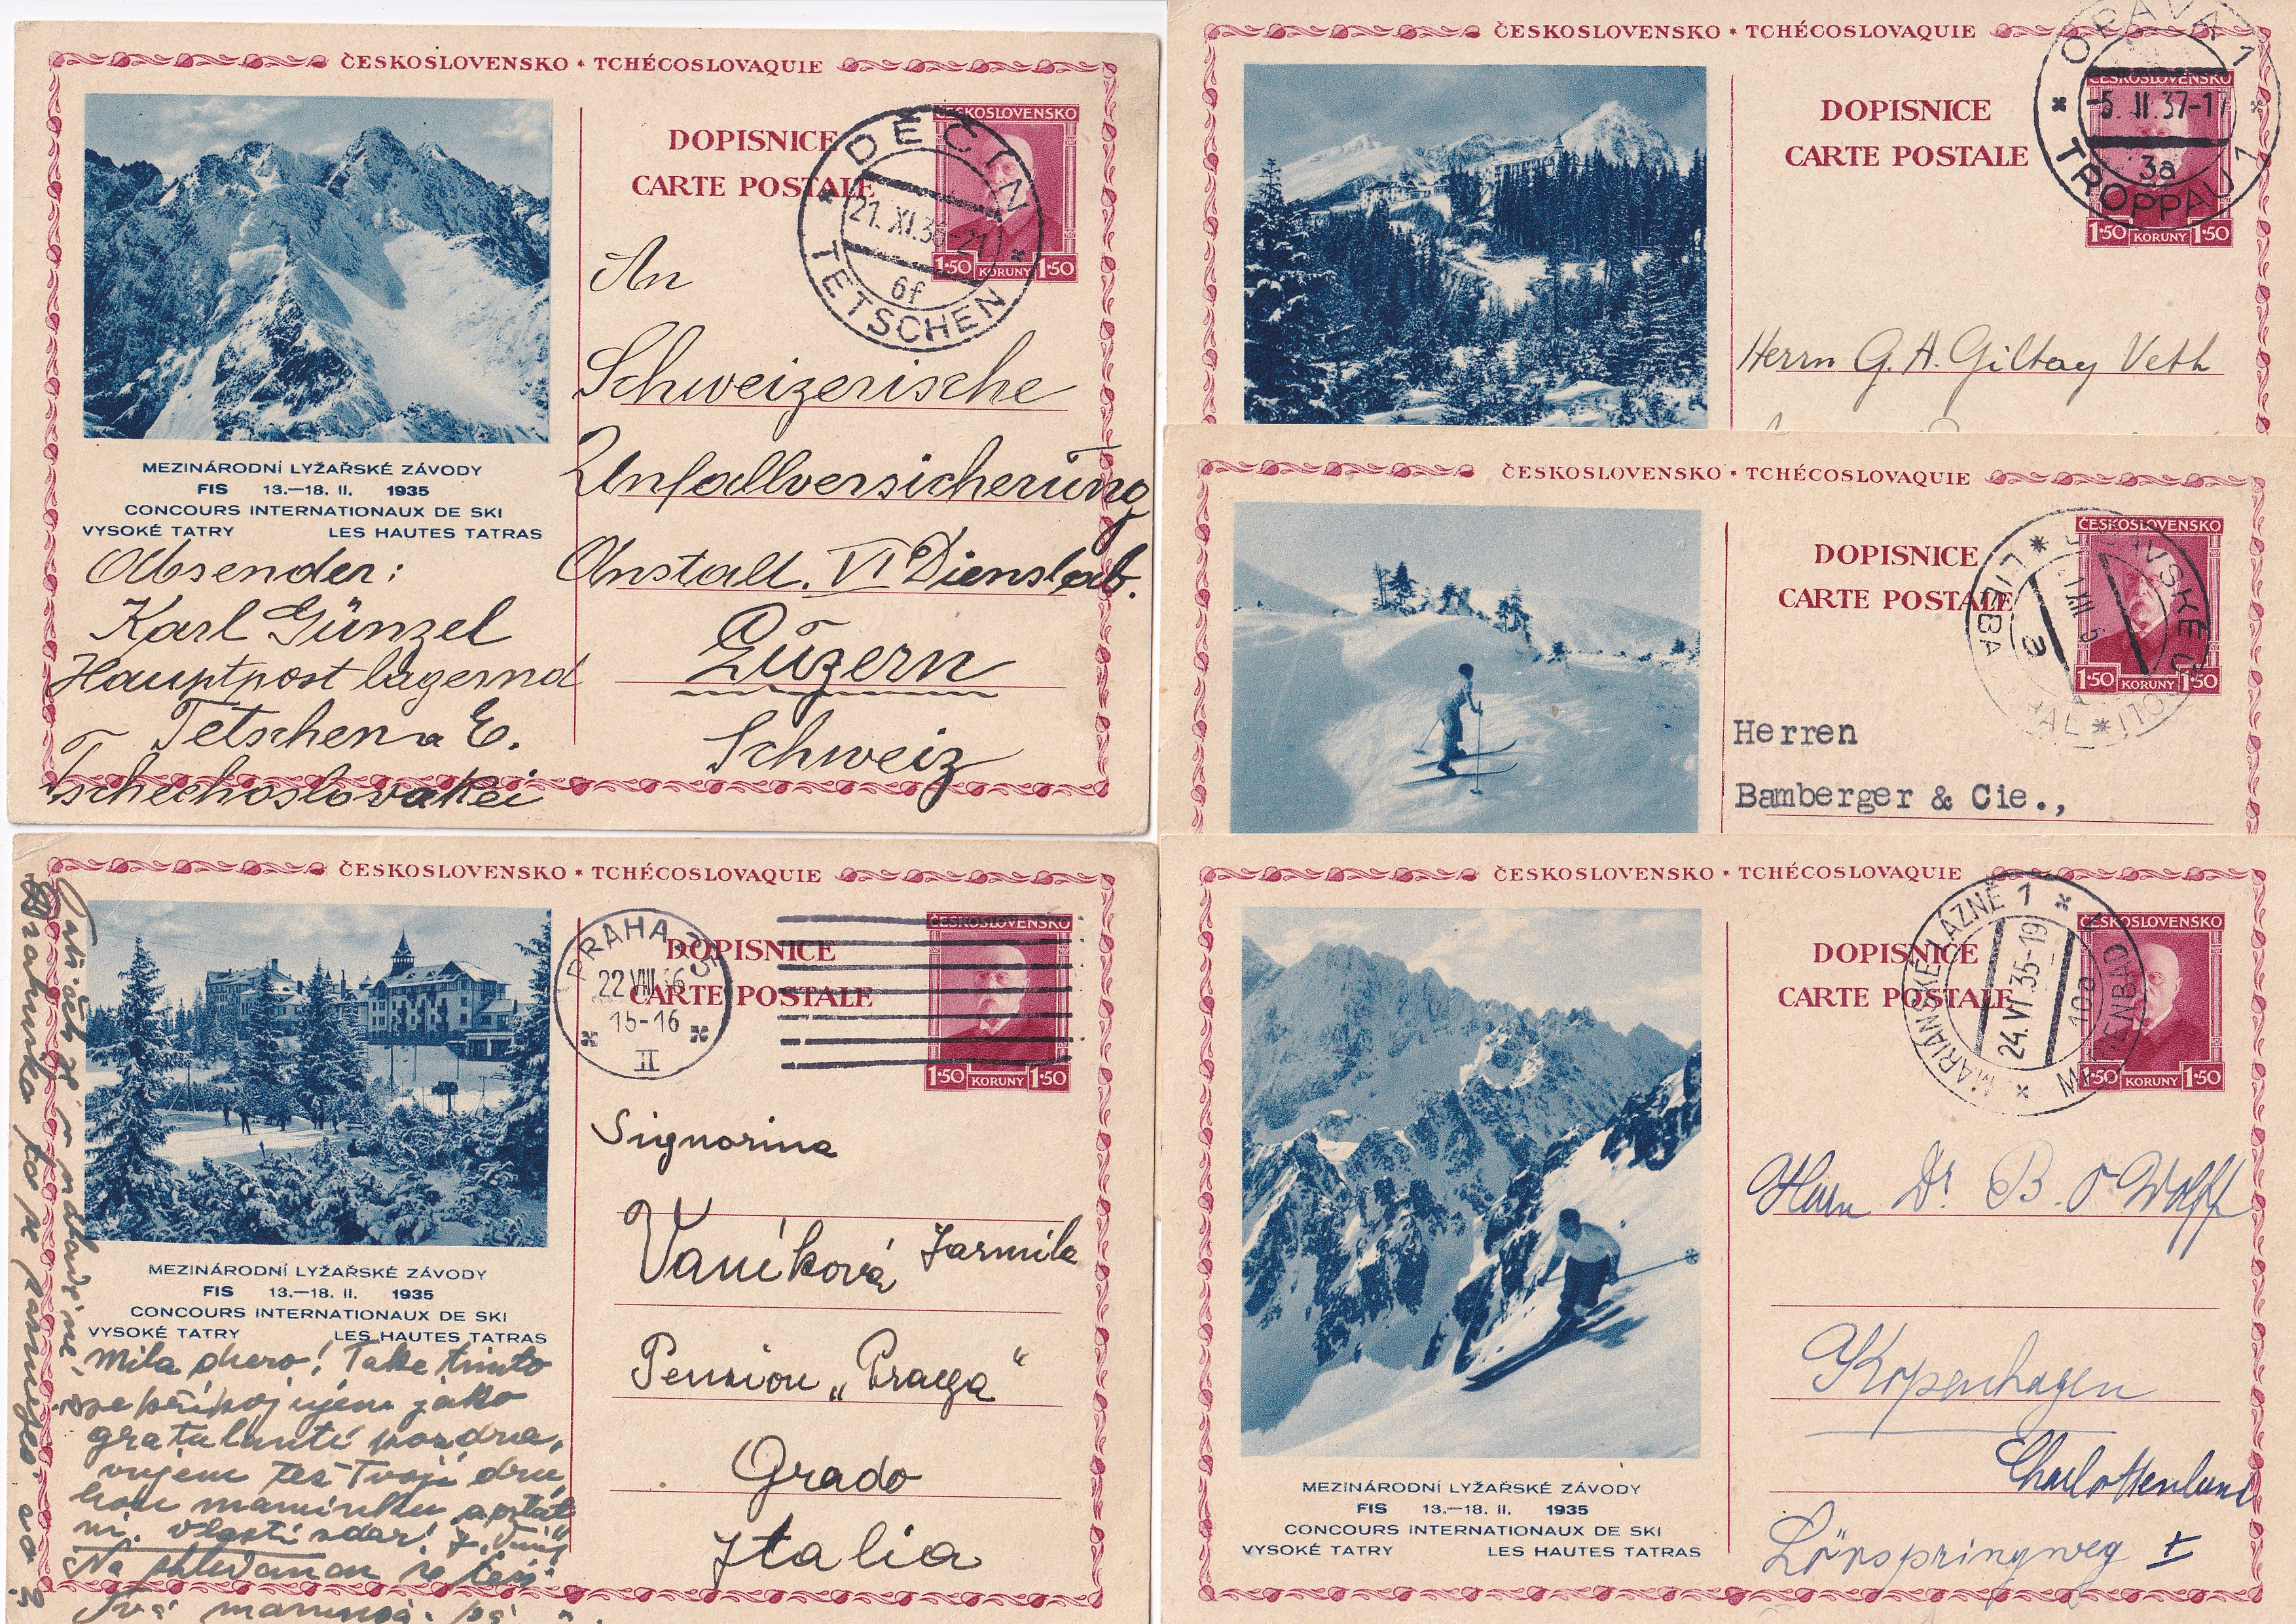 ČESKOSLOVENSKO * TCHÉCOSLOVAQUIE
DOPISNICE
CARTE POSTALE
ČESKOSLOVENSKO
1·50 KORUNY 1·50
DĚČÍN
21. XI. 21
6f
TETSCHEN
MEZINÁRODNÍ LYŽAŘSKÉ ZÁVODY
FIS 13.—18. II. 1935
CONCOURS INTERNATIONAUX DE SKI
VYSOKÉ TATRY LES HAUTES TATRAS
An
Schweizerische
Unfallversicherung
Anstalt. VI Dienstab.
Luzern
Schweiz
Absender:
Karl Günzel
Hauptpost lagernd
Tetschen a E.
Tschechoslovakei
ČESKOSLOVENSKO * TCHÉCOSLOVAQUIE
DOPISNICE
CARTE POSTALE
ČESKOSLOVENSKO
1·50 KORUNY 1·50
OPAVA 1
-5. II. 37-17
3a
TROPPAU 1
Herrn G. A. Giltay Veth
ČESKOSLOVENSKO * TCHÉCOSLOVAQUIE
DOPISNICE
CARTE POSTALE
ČESKOSLOVENSKO
1·50 KORUNY 1·50
Herren
Bamberger & Cie.,
ČESKOSLOVENSKO * TCHÉCOSLOVAQUIE
DOPISNICE
CARTE POSTALE
ČESKOSLOVENSKO
1·50 KORUNY 1·50
PRAHA
22 VIII 36
15-16
II
MEZINÁRODNÍ LYŽAŘSKÉ ZÁVODY
FIS 13.—18. II. 1935
CONCOURS INTERNATIONAUX DE SKI
VYSOKÉ TATRY LES HAUTES TATRAS
Signorina
Vaníková Jarmila
Pension „Praga“
Grado
Italia
Milá dcero! Take tímto
se připojujem jako
gratulanti pozdra,
vujem též Tvoji dru,
hou maminku
ČESKOSLOVENSKO * TCHÉCOSLOVAQUIE
DOPISNICE
CARTE POSTALE
ČESKOSLOVENSKO
1·50 KORUNY 1·50
MARIÁNSKÉ LÁZNĚ 1
24. VI. 35-19
MARIENBAD
MEZINÁRODNÍ LYŽAŘSKÉ ZÁVODY
FIS 13.—18. II. 1935
CONCOURS INTERNATIONAUX DE SKI
VYSOKÉ TATRY LES HAUTES TATRAS
Herrn Dr. B. Wolff
Kopenhagen
Charlottenlund